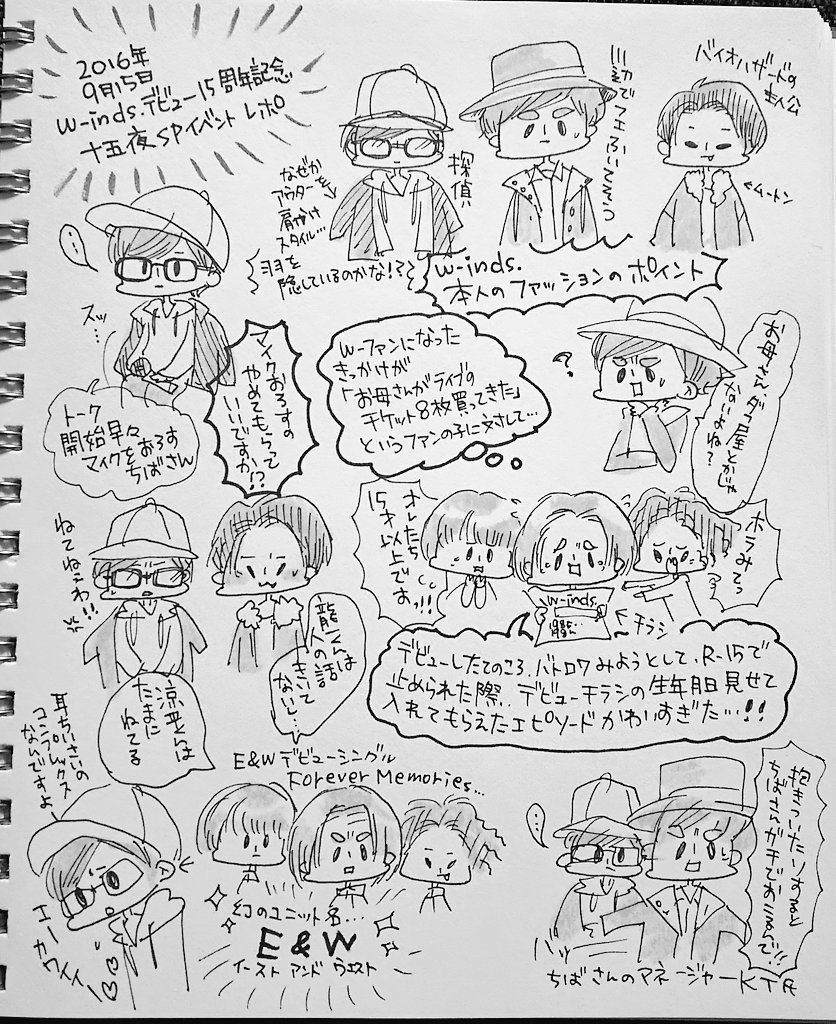 2016年
9月15日
w-inds.デビュー15周年記念
十五夜SPイベントレポ
なぜか
アウターを
肩がけ
スタイル…
羽を
隠しているのかな!?
探偵
川辺でフエふいてそう
バイオハザードの
主人公
ムートン
w-inds.
本人のファッションのポイント
スッ…
トーク
開始早々
マイクをおろす
ちばさん
マイクおろすの
やめてもらって
いいですか!?
w-ファンになった
きっかけが
「お母さんがライブの
チケット8枚買ってきた」
というファンの子に対して…
お母さん、ダフ屋とかじゃ
ないよね?
ねてねこわ!!
龍一くんは
人の話
きいて
ないし…
涼平くんは
たまに
ねてる
オレたち
15才以上でおっ!!
ホラみてっ
w-inds.
チラシ
デビューしたてのころ、バトロワみようとして、R-15で
止められた際、デビューチラシの生年月日見せて
入れてもらえたエピソードかわいすぎた…!!
耳ちいさいの
コンプレックス
なんですよ
エーカワイイ
E&Wデビューシングル
Forever Memories…
幻のユニット名…
E&W
イースト アンド ウエスト
抱きついたりすると
ちばさんがチでおこるんで!!
バッ
ちばさんのマネージャーKTR